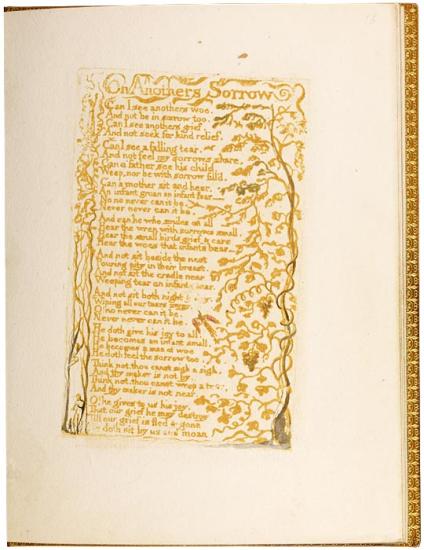 On Anothers Sorrow
Can I see anothers woe,
And not be in sorrow too.
Can I see anothers grief,
And not seek for kind relief.
Can I see a falling tear,
And not feel my sorrows share,
Can a father see his child,
Weep, nor be with sorrow fill'd.
Can a mother sit and hear,
An infant groan an infant fear
No no never can it be.
Never never can it be.
And can he who smiles on all
Hear the wren with sorrows small,
Hear the small birds grief & care
Hear the woes that infants bear
And not sit beside the nest
Pouring pity in their breast.
And not sit the cradle near
Weeping tear on infants tear.
And not sit both night
Wiping all our tears away.
O! no never can it be.
Never never can it be.
He doth give his joy to all.
He becomes an infant small.
He becomes a man of woe
He doth feel the sorrow too.
Think not, thou canst sigh a sigh,
And thy maker is not by.
Think not, thou canst weep a tear,
And thy maker is not near.
O! he gives to us his joy,
That our grief he may destroy
Till our grief is fled & gone
He doth sit by us and moan